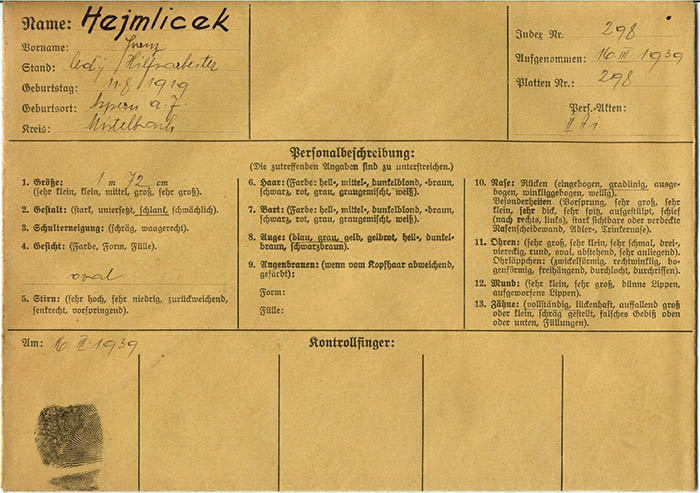 Name: Hejmlicek
Vorname: Franz
Stand: led. / Hilfsarbeiter
Geburtstag: 11.8./1919
Geburtsort: Aspern a. Z.
Kreis: Mistelbach
Index Nr. 298
Aufgenommen: 16 III 1939
Platten Nr.: 298
Pers.-Akten:
II
Personalbeschreibung:
(Die zutreffenden Angaben sind zu unterstreichen.)
1. Größe: 1 m 72 cm
(sehr klein, klein, mittel, groß, sehr groß).
2. Gestalt: (stark, untersetzt, schlank, schwächlich).
3. Schulterneigung: (schräg, waagerecht).
4. Gesicht: (Farbe, Form, Fülle).
oval
5. Stirn: (sehr hoch, sehr niedrig, zurückweichend,
senkrecht, vorspringend).
6. Haar: (Farbe: hell-, mittel-, dunkelblond, -braun,
schwarz, rot, grau, graugemischt, weiß).
7. Bart: (Farbe: hell-, mittel-, dunkelblond, -braun,
schwarz, rot, grau, graugemischt, weiß).
8. Auge: (blau, grau, gelb, gelbrot, hell-, dunkel-
braun, schwarzbraun).
9. Augenbrauen: (wenn vom Kopfhaar abweichend,
gefärbt):
Form:
Fülle:
10. Nase: Rücken (eingebogen, gradlinig, ausge-
bogen, winkliggebogen, wellig).
Besonderheiten (Vorsprung, sehr groß, sehr
klein, sehr dick, sehr spitz, aufgestülpt, schief
(nach rechts, links), stark sichtbare oder verdeckte
Nasenscheidewand, Adler-, Trinkernase).
11. Ohren: (sehr groß, sehr klein, sehr schmal, drei-,
viereckig, rund, oval, abstehend, sehr anliegend).
Ohrläppchen: (zwickelförmig, rechtwinklig, bo-
genförmig, freihängend, durchlocht, durchrissen).
12. Mund: (sehr klein, sehr groß, dünne Lippen,
aufgeworfene Lippen).
13. Zähne: (vollständig, lückenhaft, auffallend groß
oder klein, schräg gestellt, falsches Gebiß oben
oder unten, Füllungen).
Am: 16 III 1939
Kontrollfinger: